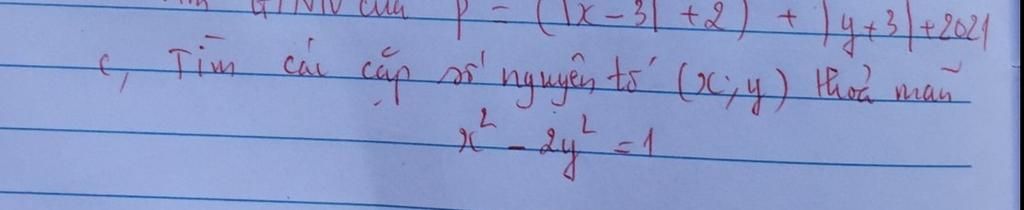 GTNN của P = (|x-3| + 2) + |y+3| + 2021
c, Tìm các cặp số nguyên tố (x; y) thoả mãn
x² - 2y² = 1